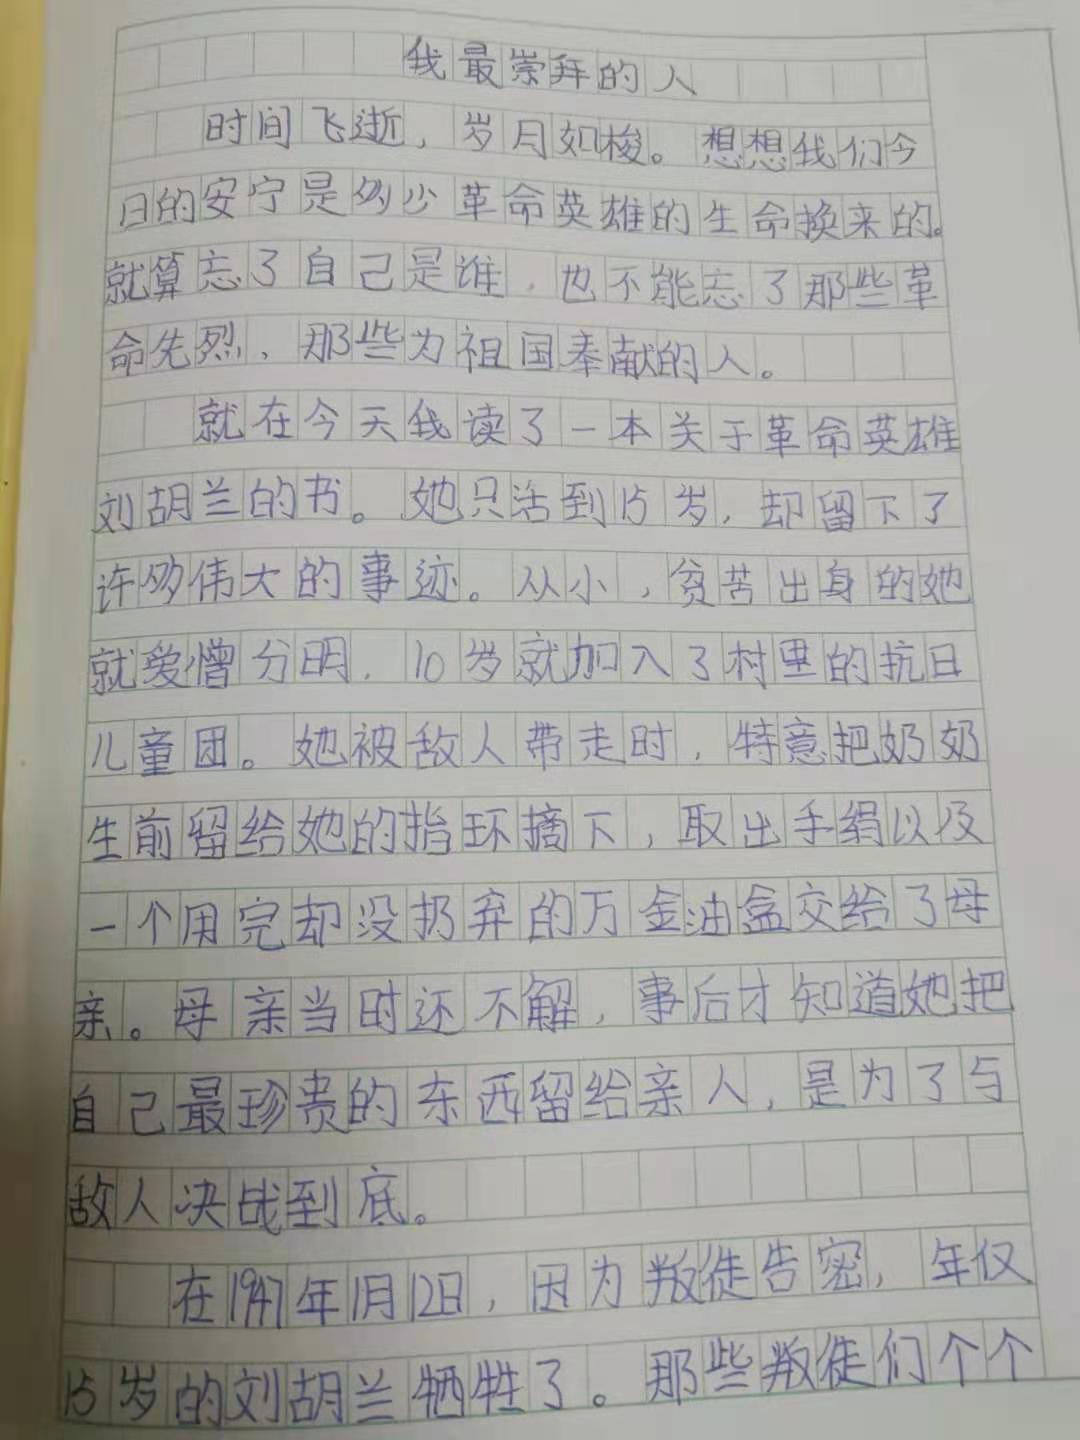 我最崇拜的人
时间飞逝，岁月如梭。想想我们今
日的安宁是多少革命英雄的生命换来的。
就算忘了自己是谁，也不能忘了那些革
命先烈，那些为祖国奉献的人。
就在今天我读了一本关于革命英雄
刘胡兰的书。她只活到15岁，却留下了
许多伟大的事迹。从小，贫苦出身的她
就爱憎分明，10岁就加入了村里的抗日
儿童团。她被敌人带走时，特意把奶奶
生前留给她的指环摘下，取出手绢以及
一个用完却没扔弃的万金油盒交给了母
亲。母亲当时还不解，事后才知道她把
自己最珍贵的东西留给亲人，是为了与
敌人决战到底。
在1947年1月12日，因为叛徒告密，年仅
15岁的刘胡兰牺牲了。那些叛徒们个个